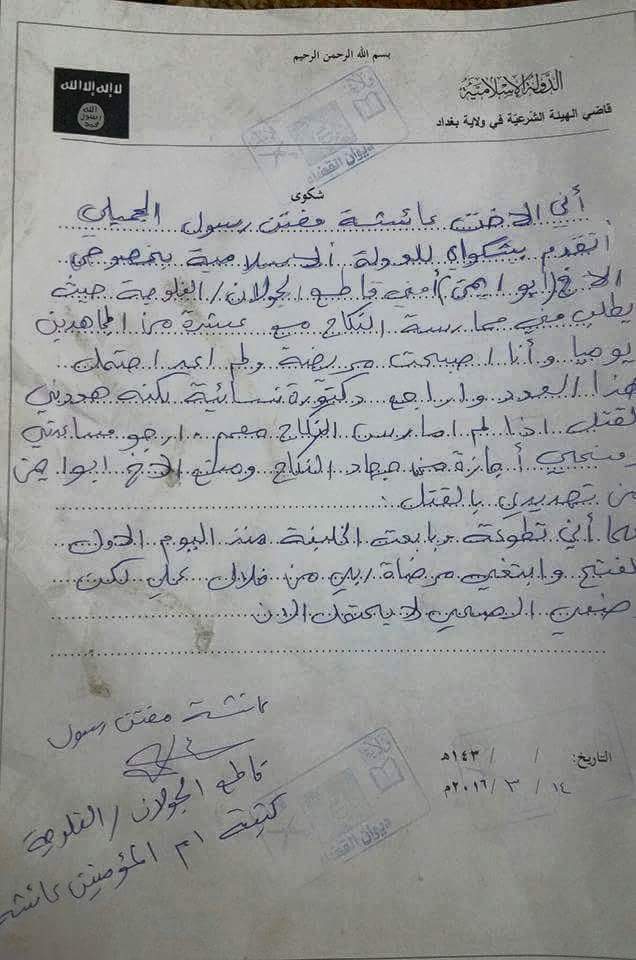 بسم الله الرحمن الرحيم
لا إله إلا الله
الله
رسول
محمد
الدولة الإسلامية
قاضي الهيئة الشرعية في ولاية بغداد
ديوان القضاء
شكوى
أني الاخت عائشة مفتن رسول الجميلي
أتقدم بشكواي للدولة الاسلامية بخصوص
الاخ (أبو ايمن) أمني قاطع الجولان / الفلوجة حيث
يطلب مني ممارسة النكاح مع عشرة من المجاهدين
يوميا وأنا اصبحت مريضة ولم اعد احتمل
هذا العدد واراجع دكتورة نسائية لكنه هددني
لقتل اذا لم امارس النكاح معهم . ارجو مساعدتي
ومنحي أجازة من جهاد النكاح ومنع الاخ ابو ايمن
من تهديدي بالقتل .
كما أني تطوعة بايعت الخليفة منذ اليوم الاول
لفتح وابتغي مرضاة ربي من خلال عملي لكن
ضعي الصحي لا يحتمل الان
عائشة مفتن رسول
قاطع الجولان / الفلوجة
كتيبة ام المؤمنين عائشة
التاريخ: / / ١٤٣هـ
١٤ / ٣ / ٢٠١٦م
ولاية
ديوان القضاء